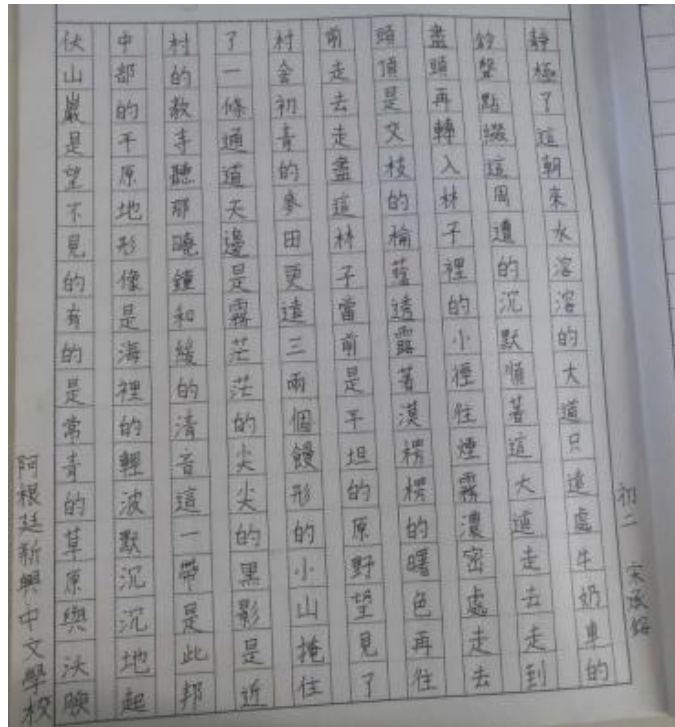 初二 宋承
靜極了這朝來水溶溶的大道只遠處牛奶車的
鈴聲點綴這周遭的沉默順著這大道走去走到
盡頭再轉入林子裡的小徑往煙霧濃密處走去
頭頂是交枝的榆蔭透露著漠楞楞的曙色再往
前走去走盡這林子當前是平坦的原野望見了
村舍初青的麥田更遠三兩個饅形的小山掩住
了一條通道天邊是霧茫茫的尖尖的黑影是近
村的教寺聽那曉鐘和緩的清音這一帶是此邦
中部的平原地形像是海裡的輕波默沉沉地起
伏山巖是望不見的有的是常青的草原與沃腴
阿根廷新興中文學校